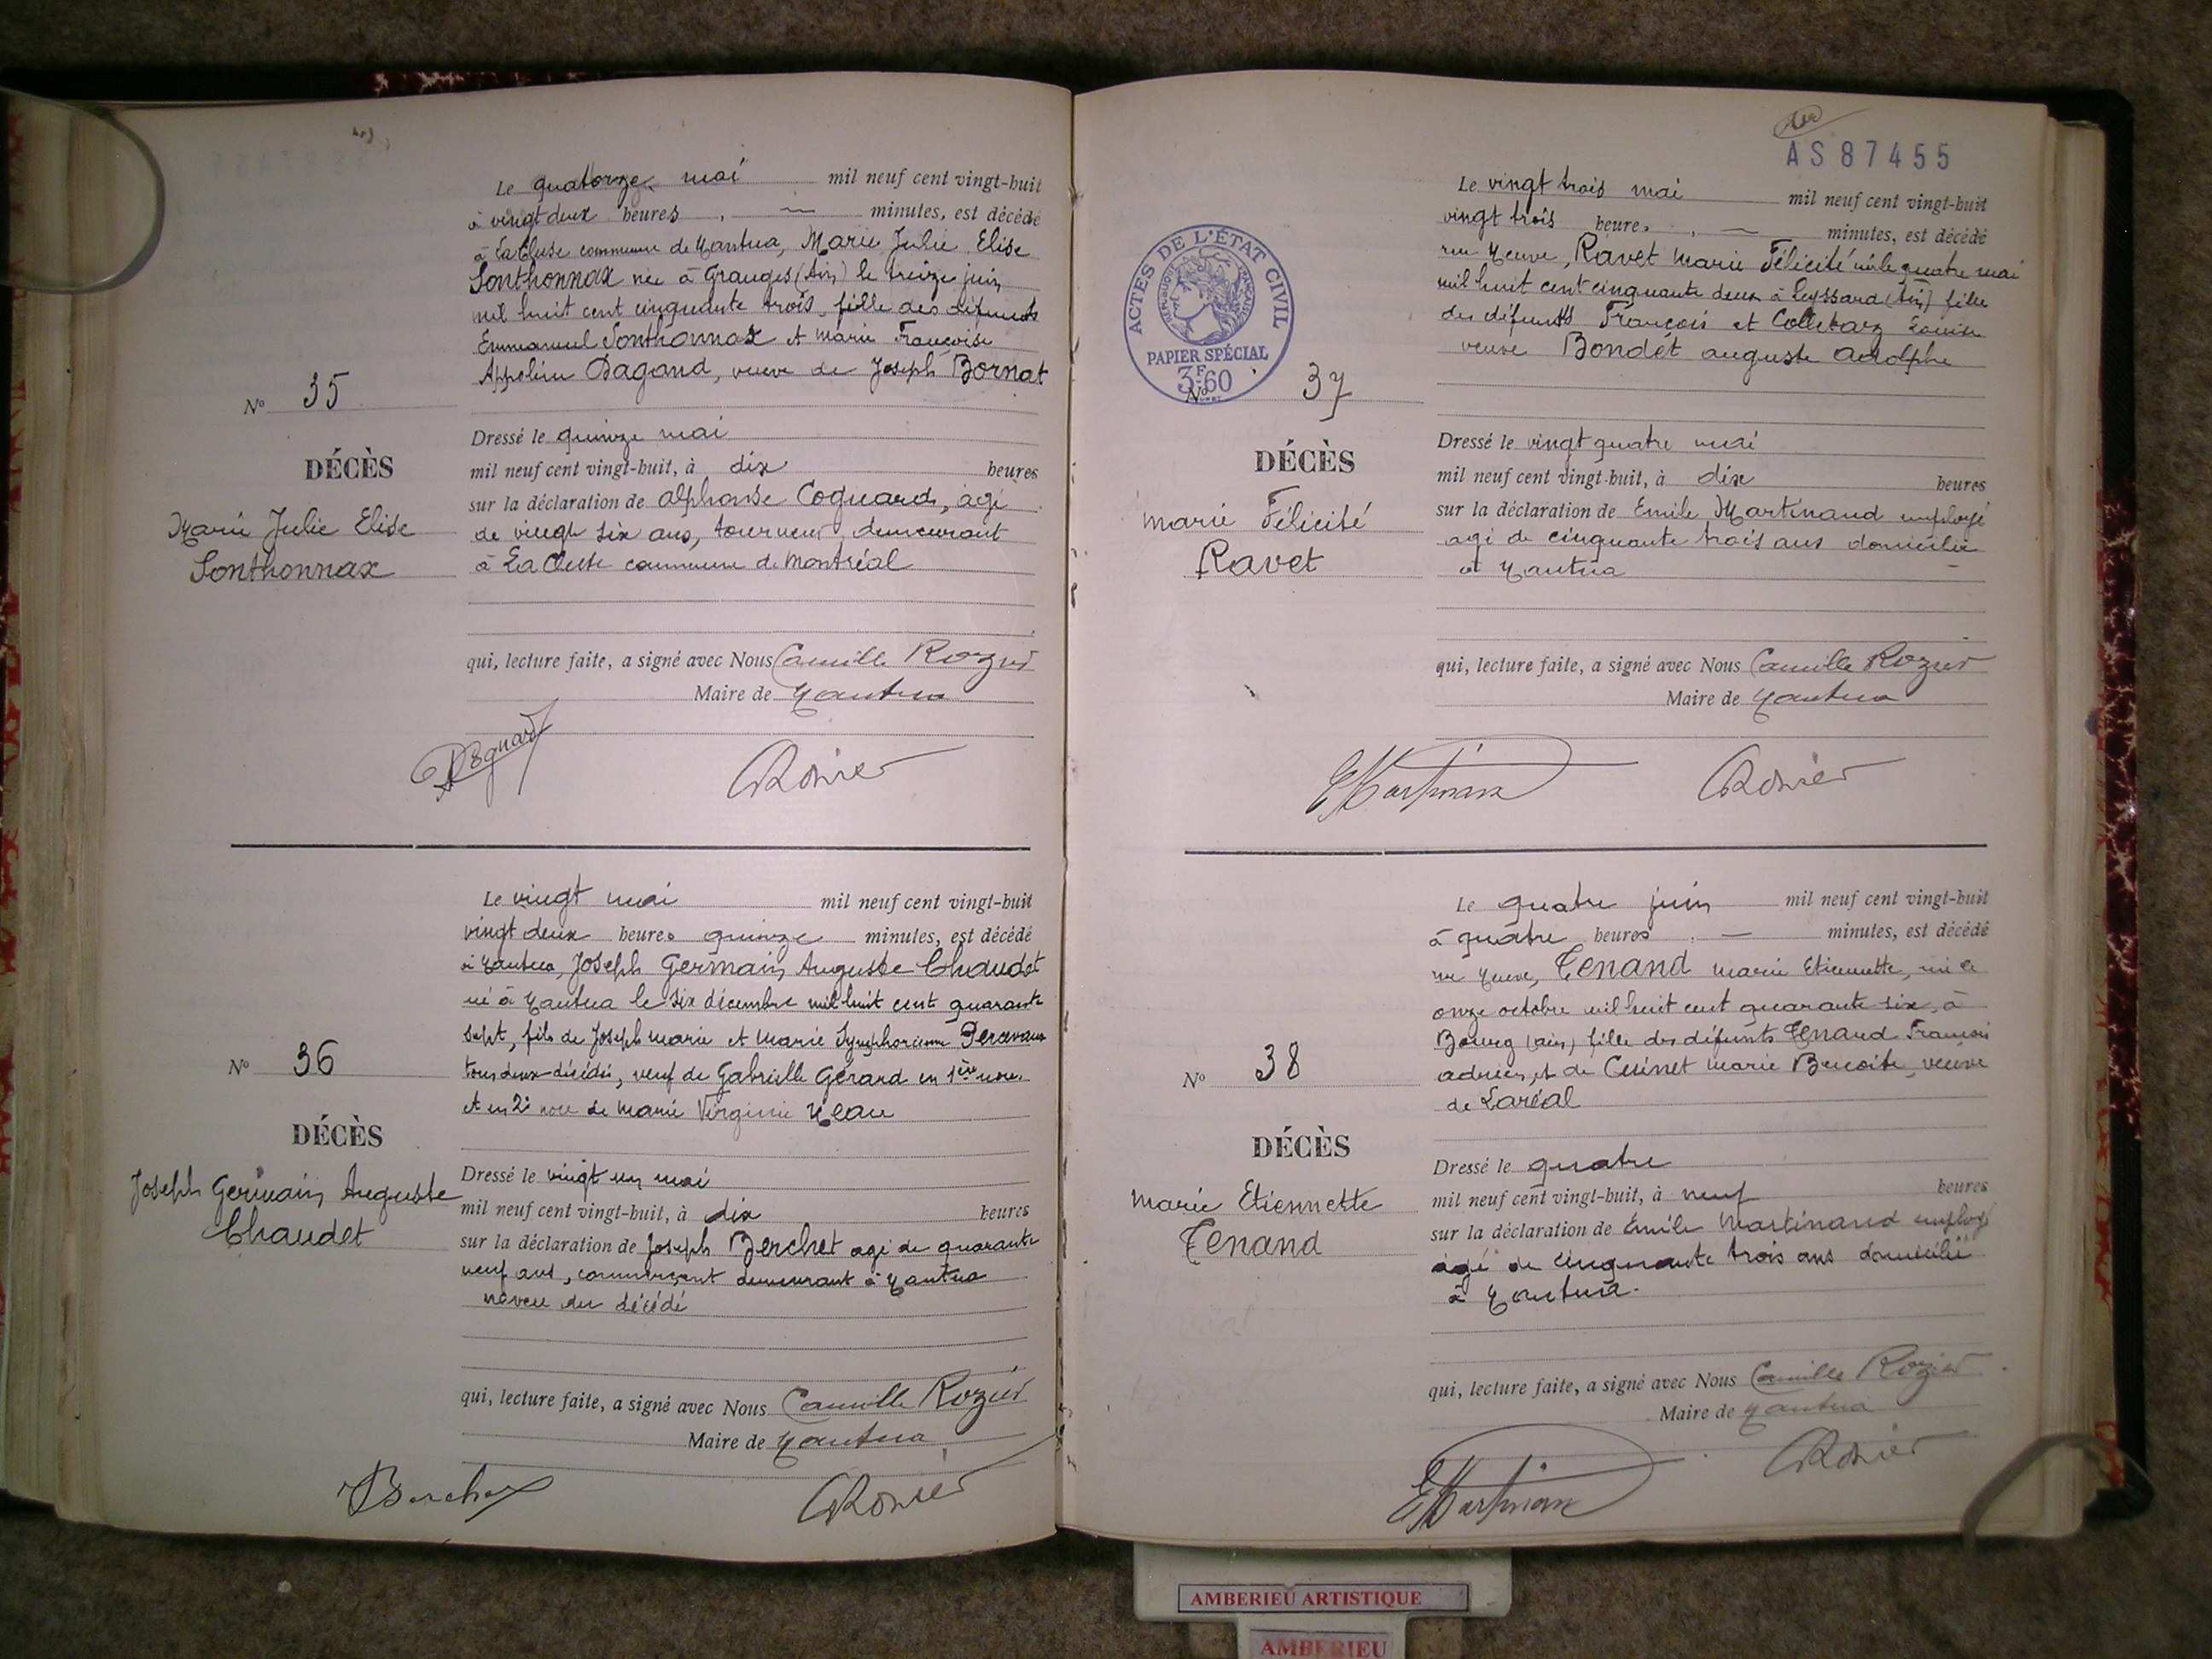 Le quatorze mai mil neuf cent vingt-huit
à vingt deux heures, — minutes, est décédé
à La Cluse commune de Nantua, Marie Julie Elise
Sonthonnax née à Granges (Ain) le treize juin
mil huit cent cinquante trois, fille des défunts
Emmanuel Sonthonnax et Marie Françoise
Appoline Dagand, veuve de Joseph Bornat
N° 35
Dressé le quinze mai
DÉCÈS
mil neuf cent vingt-huit, à dix heures
sur la déclaration de Alphonse Coquard, agé
Marie Julie Elise
de vingt six ans, tourneur, demeurant
Sonthonnax
à La Cluse commune de Montréal
qui, lecture faite, a signé avec Nous Camille Rozier
Maire de Nantua
CRosier
Le vingt mai mil neuf cent vingt-huit
vingt deux heures quinze minutes, est décédé
à Nantua, Joseph Germain Auguste Chaudet
né à Nantua le six décembre mil huit cent quarante
sept, fils de Joseph Marie et Marie Symphorienne
N° 36
tous deux décédés, veuf de Gabrielle Gérard en 1ère noce
et en 2e noce de Marie Virginie Neau
DÉCÈS
Dressé le vingt un mai
Joseph Germain Auguste
mil neuf cent vingt-huit, à dix heures
Chaudet
sur la déclaration de Joseph Berchet agé de quarante
neuf ans, commerçant demeurant à Nantua
neveu du décédé
qui, lecture faite, a signé avec Nous Camille Rozier
Maire de Nantua
JBerchet
CRosier
AS87455
Le vingt trois mai mil neuf cent vingt-huit
vingt trois heures, — minutes, est décédé
rue Neuve, Ravet Marie Félicité née le quatre mai
mil huit cent cinquante deux à Leyssard (Ain) fille
des défunts François et Louise
veuve Bondet Auguste Adolphe
ACTES DE L'ÉTAT CIVIL
RÉPUBLIQUE FRANÇAISE
PAPIER SPÉCIAL
3F60
N° 37
Dressé le vingt quatre mai
DÉCÈS
mil neuf cent vingt-huit, à dix heures
Marie Félicité
sur la déclaration de Emile Martinand employé
agé de cinquante trois ans domicilié
Ravet
à Nantua
qui, lecture faite, a signé avec Nous Camille Rozier
Maire de Nantua
EMartinand
CRosier
Le quatre juin mil neuf cent vingt-huit
à quatre heures, — minutes, est décédé
rue Neuve, Tenand Marie Etiennette, née le
onze octobre mil huit cent quarante six, à
Bourg (Ain) fille des défunts Tenand François
Adrien, et de Cuinet Marie Benoite, veuve
N° 38
de Laréal
DÉCÈS
Dressé le quatre
Marie Etiennette
mil neuf cent vingt-huit, à neuf heures
Tenand
sur la déclaration de Emile Martinand employé
âgé de cinquante trois ans domicilié
à Nantua.
qui, lecture faite, a signé avec Nous Camille Rozier
Maire de Nantua
EMartinand
CRosier
AMBERIEU ARTISTIQUE
AMBERIEU